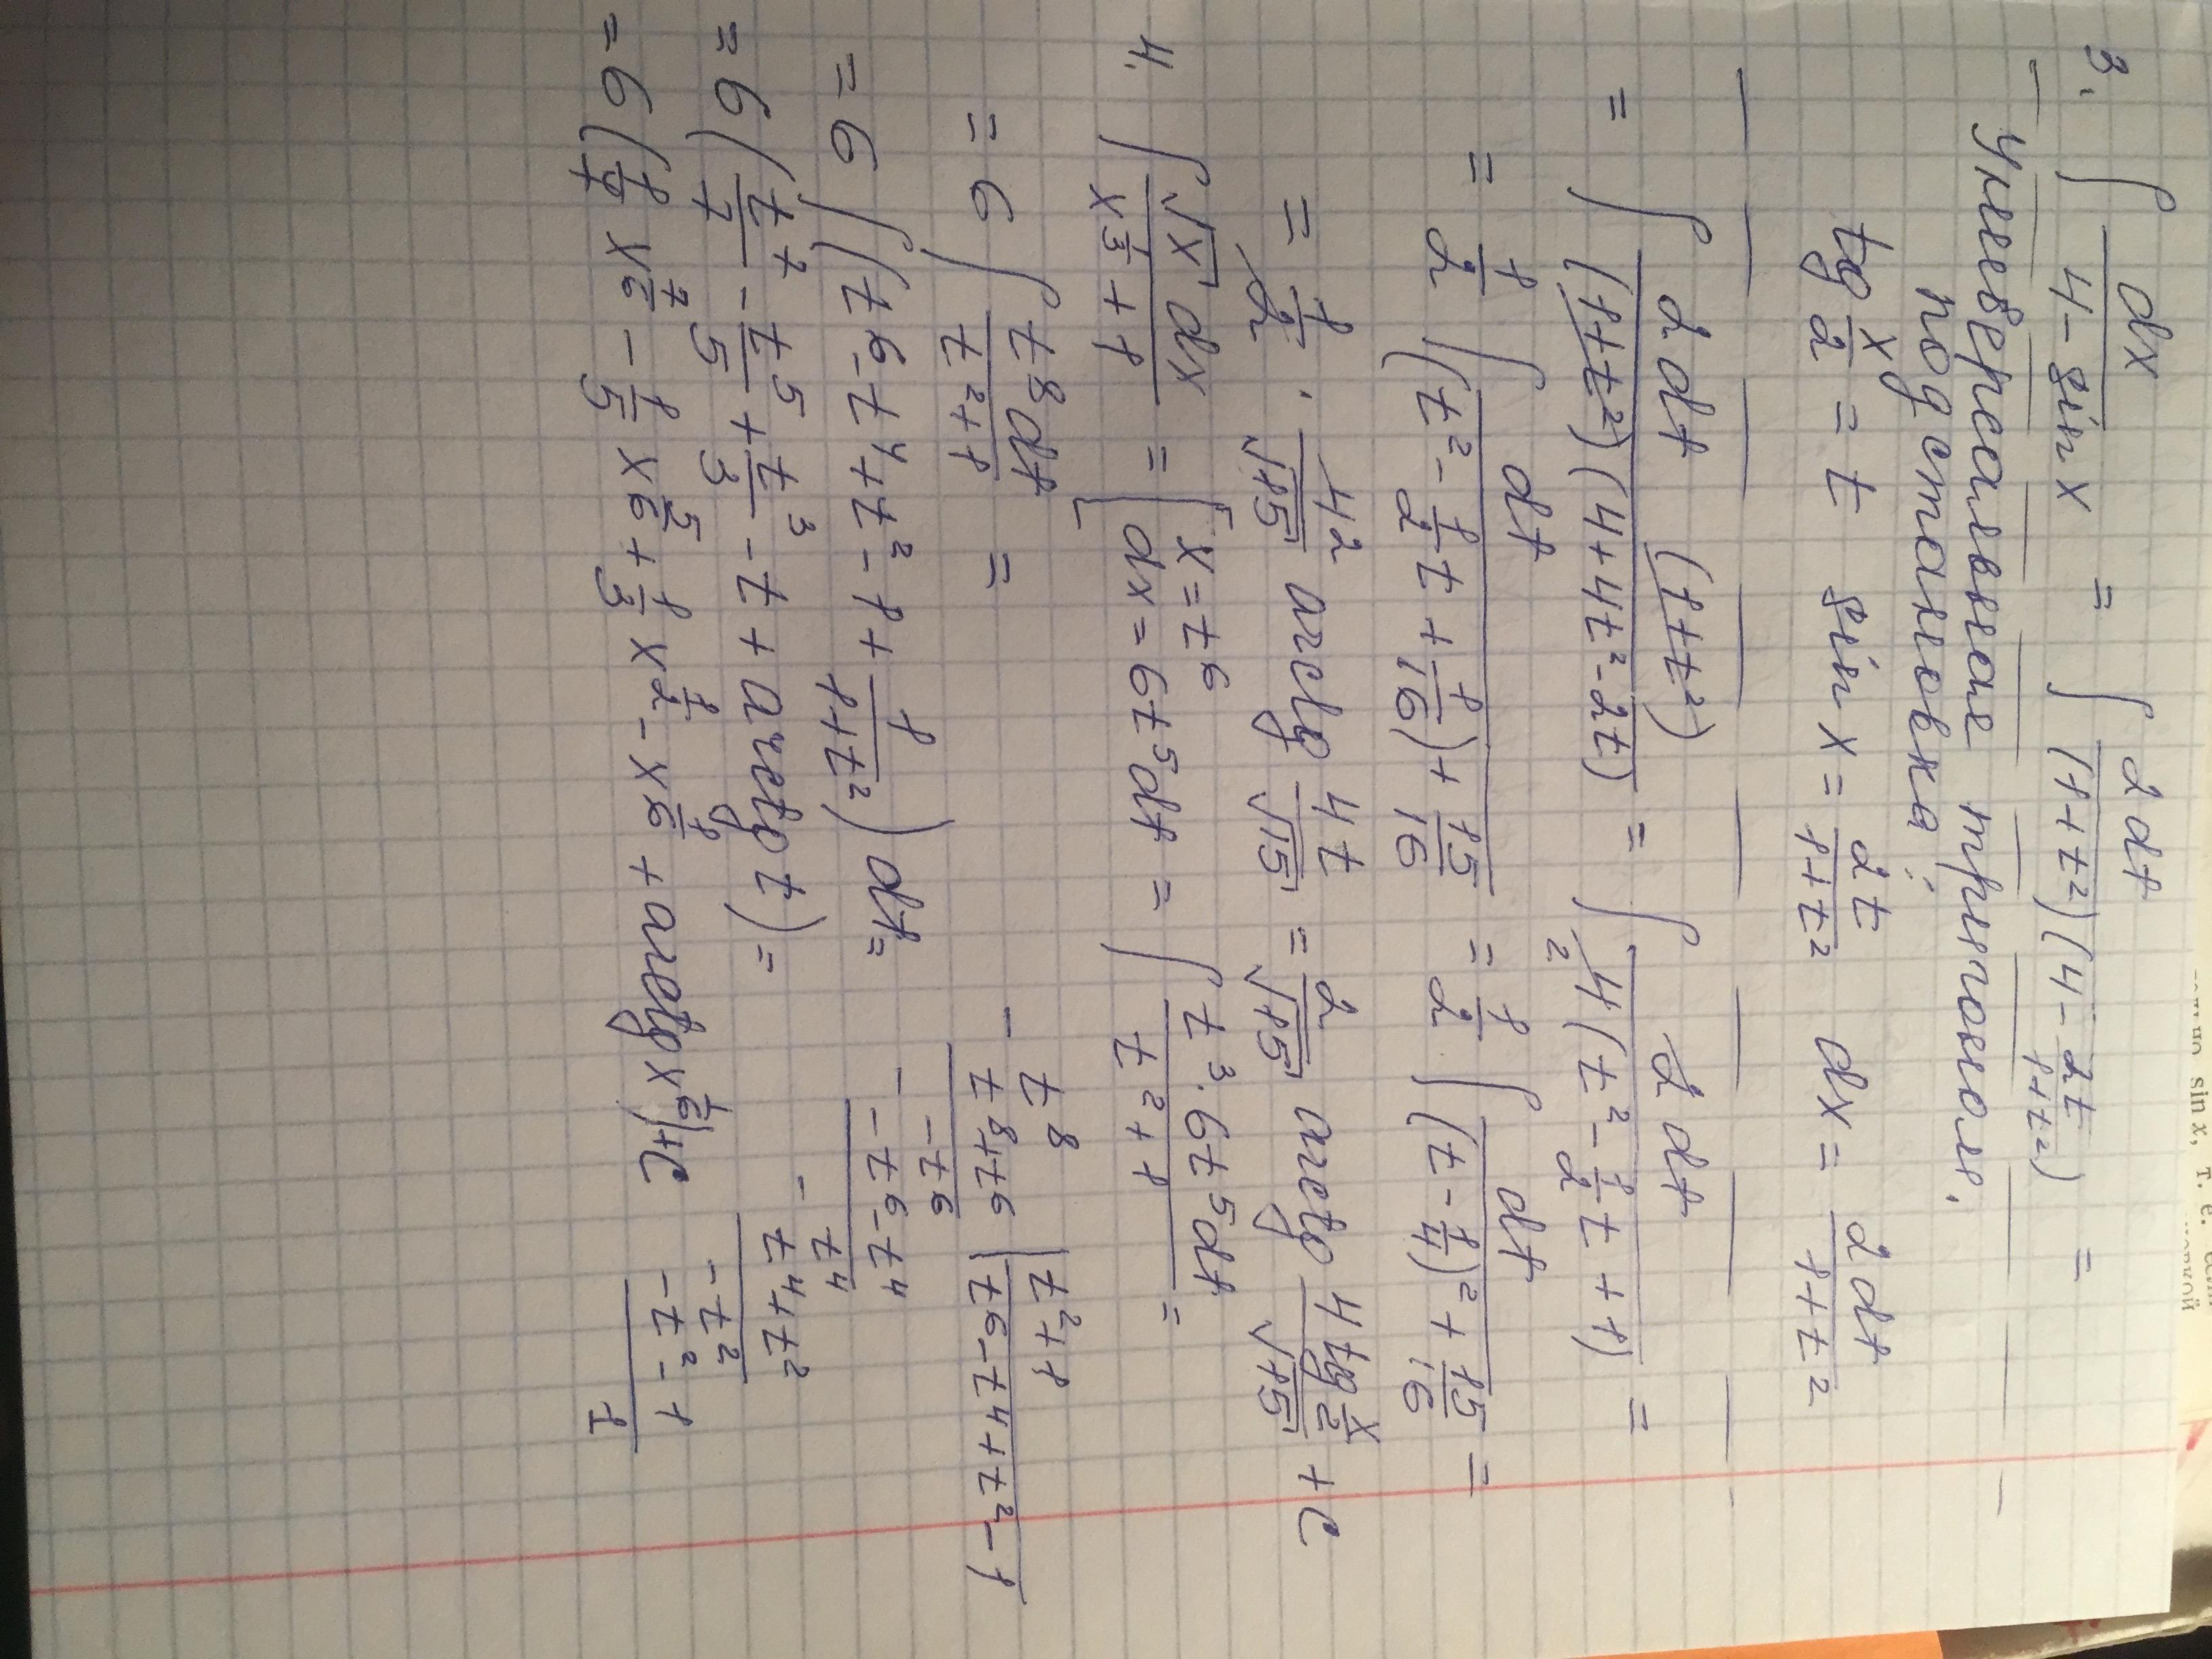 3. ∫ dx/(4 - sin x) = ∫ 2dt/((1+t²)(4 - 2t/(1+t²))) =
Универсальная тригоном.
подстановка:
tg x/2 = t sin x = 2t/(1+t²) dx = 2dt/(1+t²)
= ∫ 2dt (1+t²)/((1+t²)(4+4t²-2t)) = ∫ 2dt/(4(t² - 1/2 t + 1)) =
= 1/2 ∫ dt/((t² - 1/2 t + 1/16) + 15/16) = 1/2 ∫ dt/((t - 1/4)² + 15/16) =
= 1/2 · 4/√15 arctg 4t/√15 = 2/√15 arctg (4 tg x/2)/√15 + C
4. ∫ √x dx/(x^(1/3) + 1) = [x = t⁶ dx = 6t⁵dt = ∫ t³·6t⁵dt/(t²+1) =
= 6 ∫ t⁸dt/(t²+1) =
= 6 ∫ (t⁶ - t⁴ + t² - 1 + 1/(1+t²)) dt =
= 6 (t⁷/7 - t⁵/5 + t³/3 - t + arctg t) =
= 6 (1/7 x^(7/6) - 1/5 x^(5/6) + 1/3 x^(1/2) - x^(1/6) + arctg x^(1/6)) + C
- t⁸ | t²+1
t⁸+t⁶ | t⁶ - t⁴ + t² - 1
- -t⁶
-t⁶ - t⁴
- t⁴
t⁴+t²
-t²
-t² - 1
1
sin x, т. е.